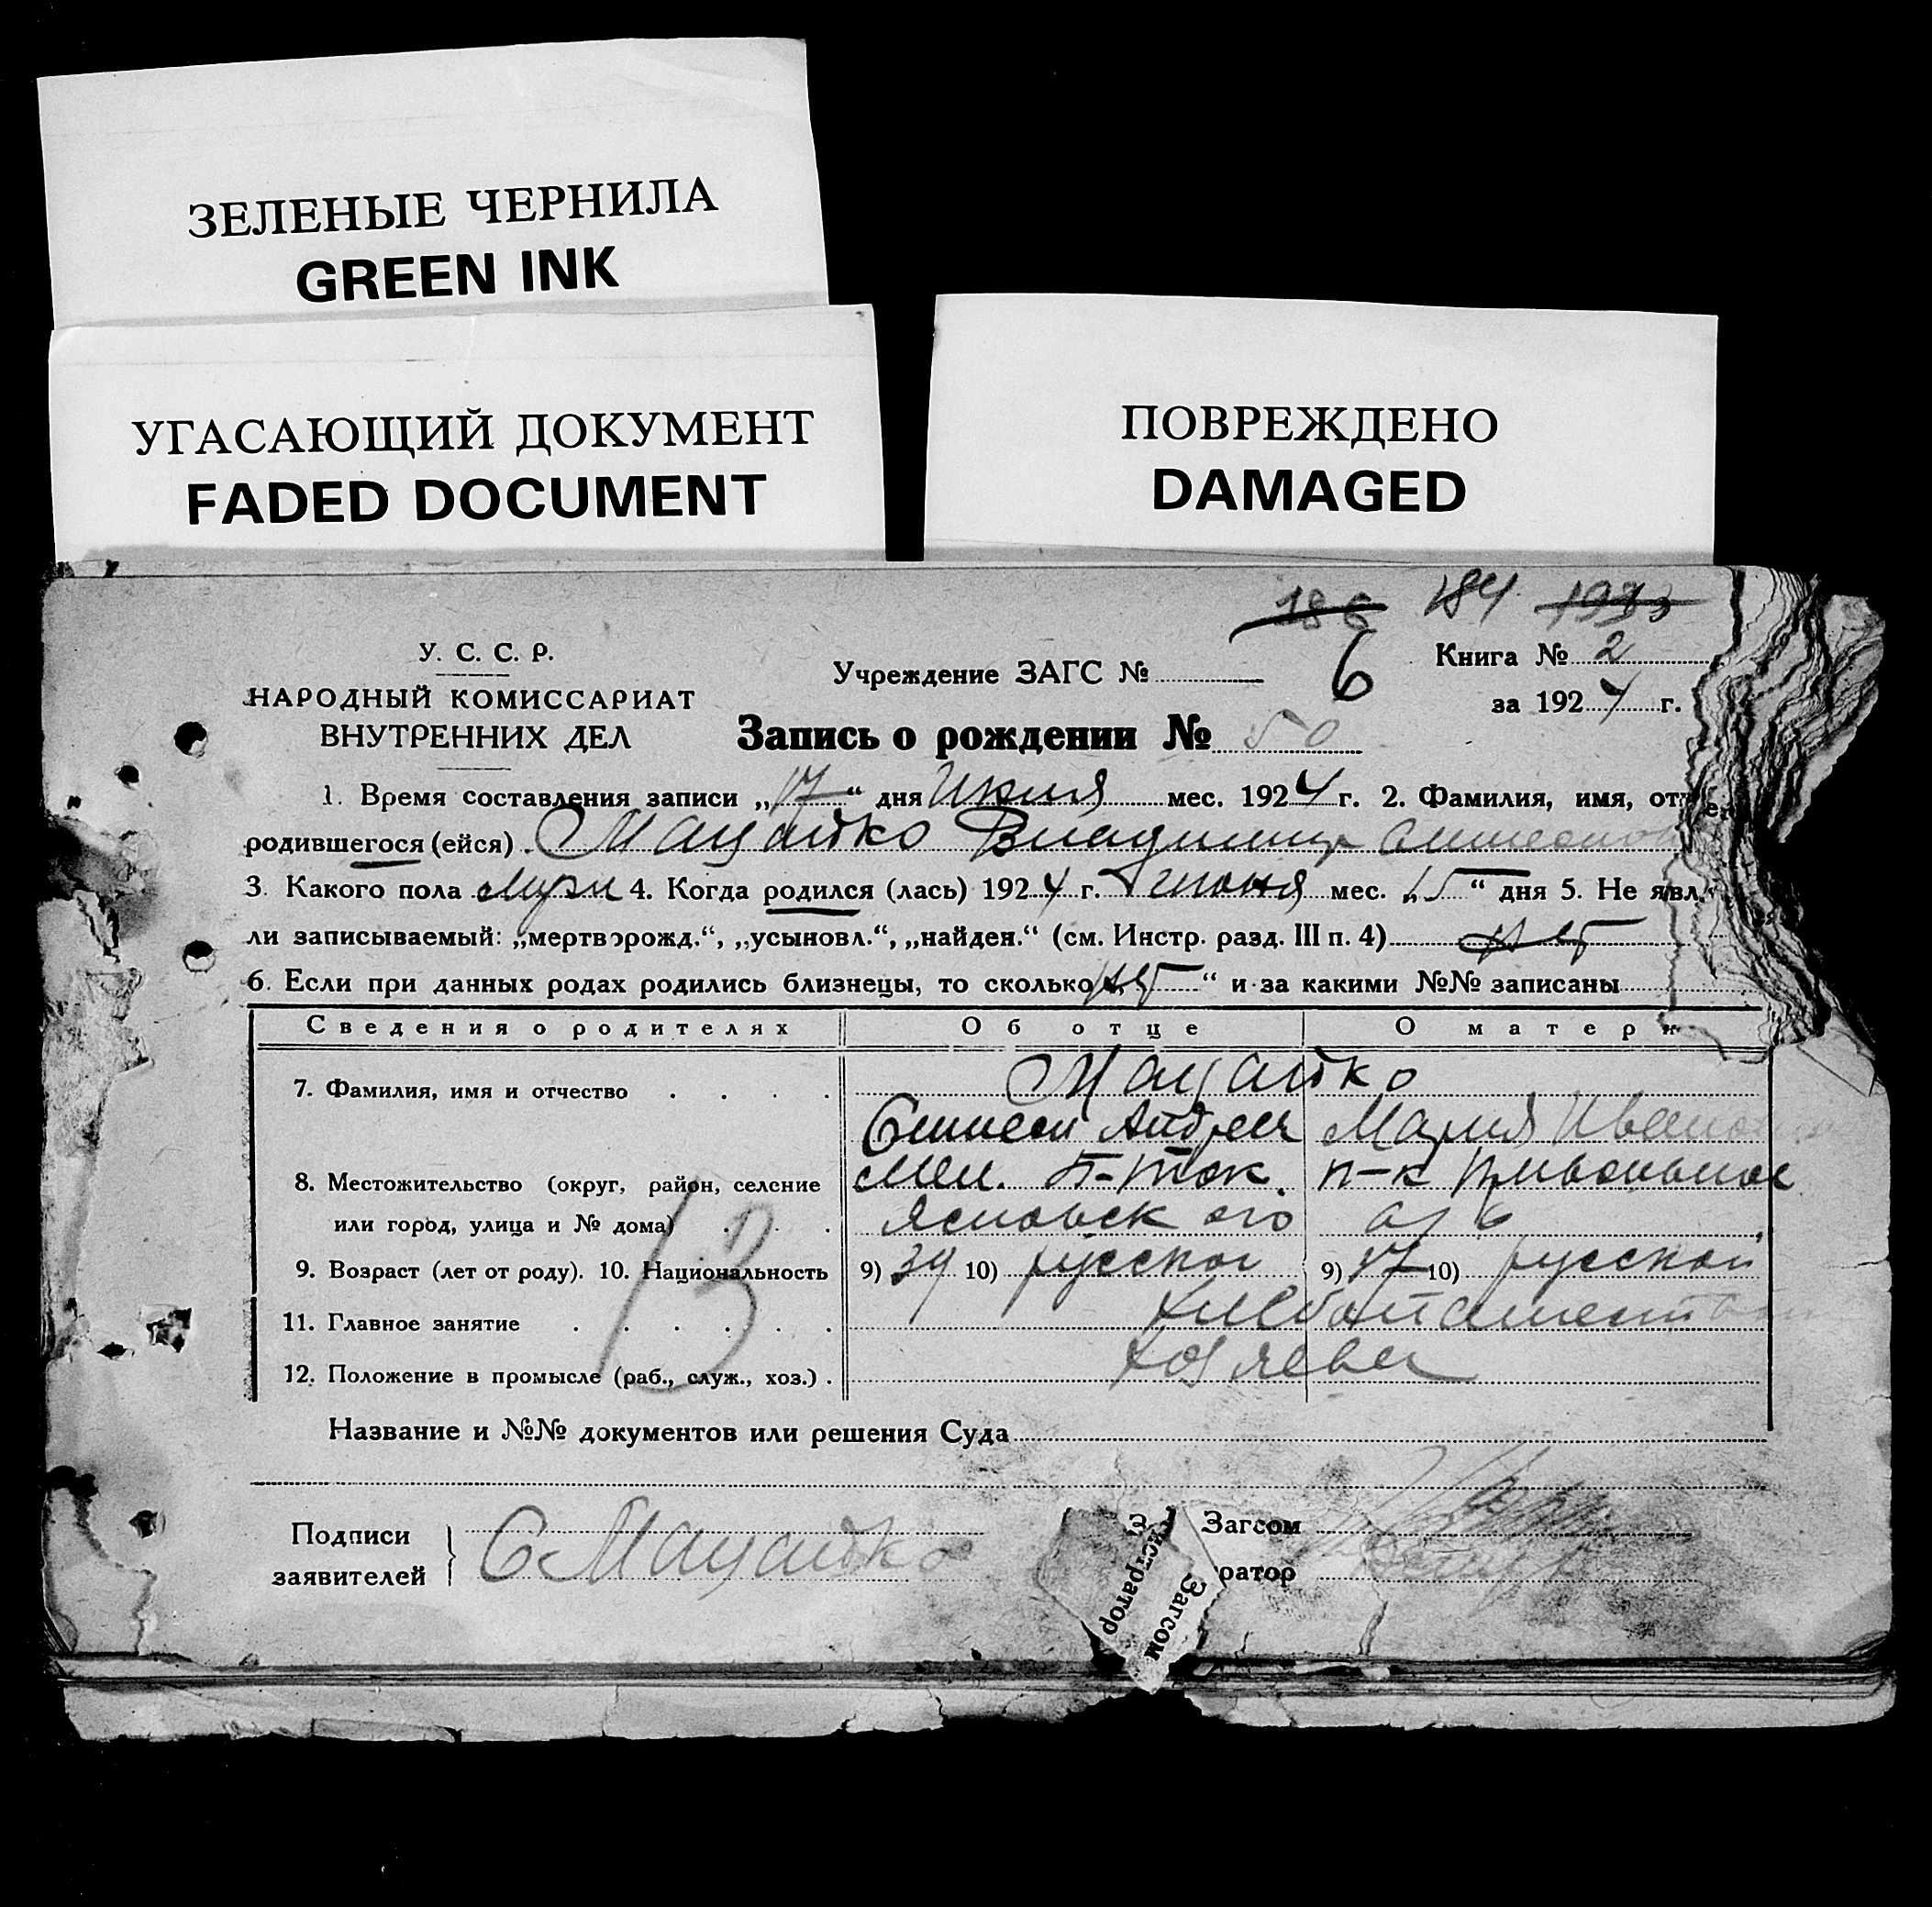 ЗЕЛЕНЫЕ ЧЕРНИЛА
GREEN INK
УГАСАЮЩИЙ ДОКУМЕНТ
FADED DOCUMENT
ПОВРЕЖДЕНО
DAMAGED
186 184 1933
У. С. С. Р.
НАРОДНЫЙ КОМИССАРИАТ
ВНУТРЕННИХ ДЕЛ
Учреждение ЗАГС № 6
Книга № 2
за 1924 г.
Запись о рождении № 50
1. Время составления записи „17“ дня Июня мес. 1924 г. 2. Фамилия, имя, от
родившегося (ейся) Мацайко Владимир
3. Какого пола муж 4. Когда родился (лась) 1924 г. Июня мес. „15“ дня 5. Не явл.
ли записываемый: „мертворожд.“, „усыновл.“, „найден.“ (см. Инстр. разд. III п. 4) нет
6. Если при данных родах родились близнецы, то сколько „нет“ и за какими №№ записаны
Сведения о родителях Об отце О матери
7. Фамилия, имя и отчество Мацайко
Симеон Андреев Мария Иванов
8. Местожительство (округ, район, селение
или город, улица и № дома)
9. Возраст (лет от роду). 10. Национальность 9) 39 10) русской 9) 37 10) русской
11. Главное занятие хлебопашест
12. Положение в промысле (раб., служ., хоз.) хозяева
13
Название и №№ документов или решения Суда
Подписи
заявителей
С Мацайко
Загсом
ратор
гистратор
Загсом